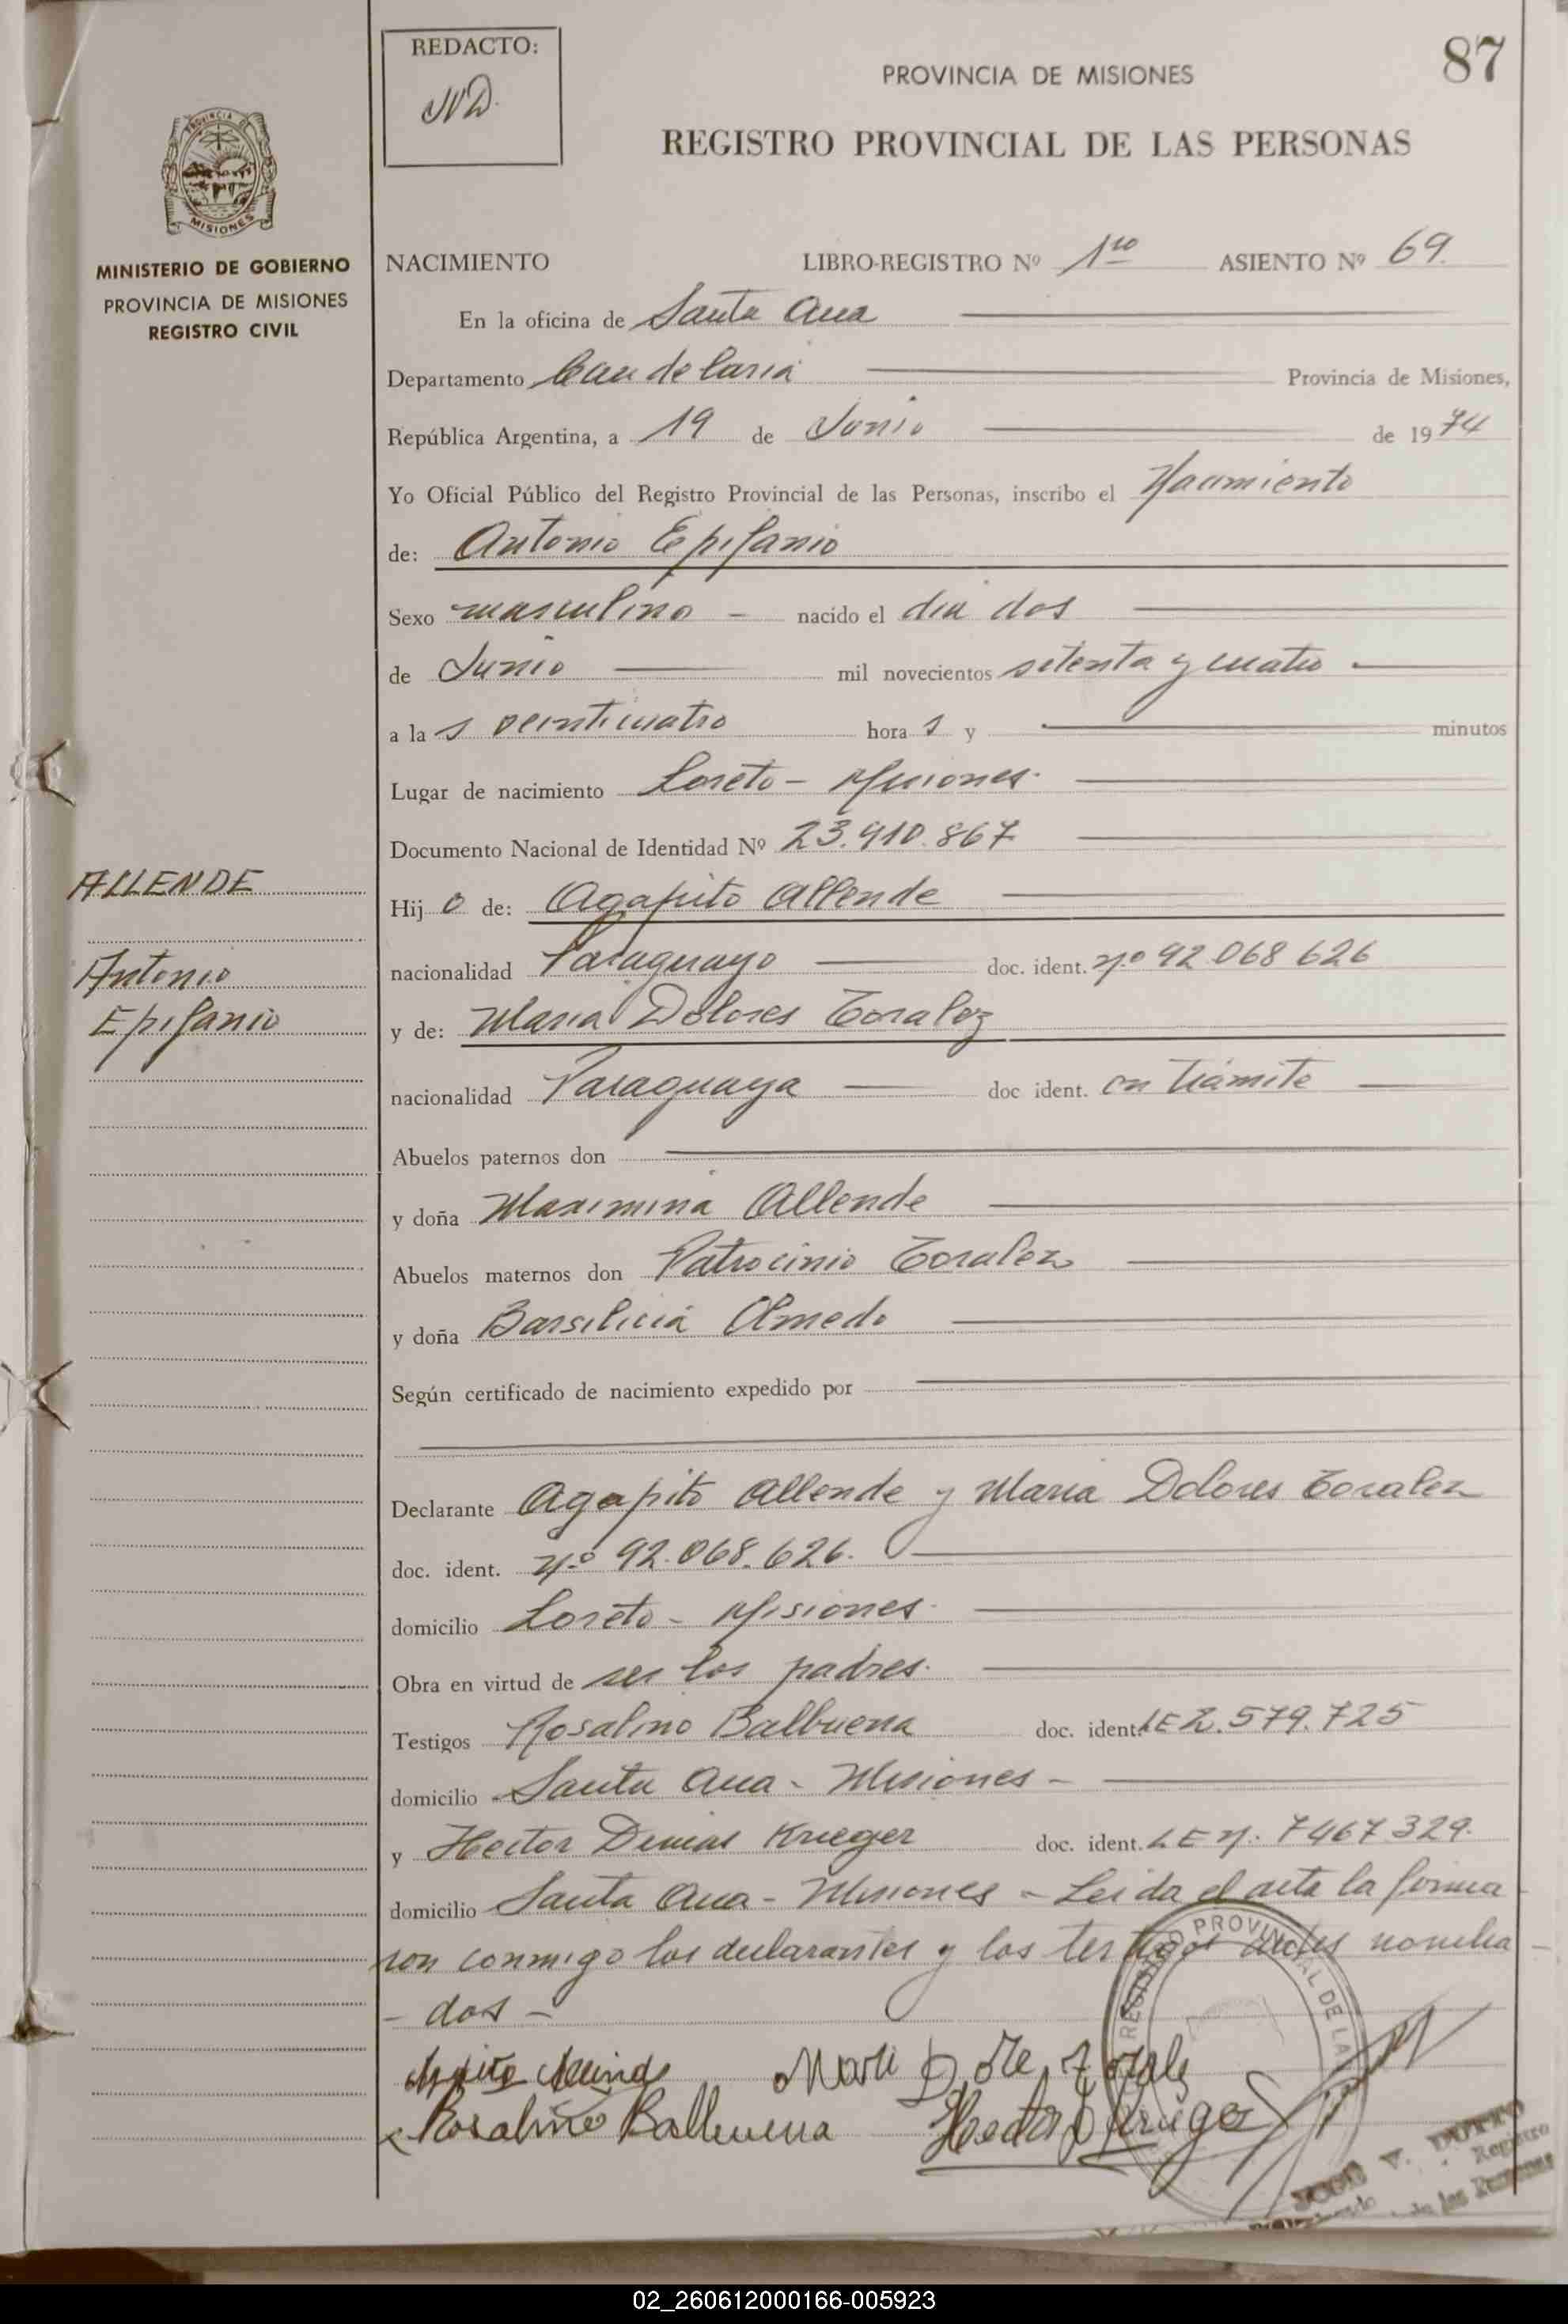 REDACTO:
87
PROVINCIA DE MISIONES
REGISTRO PROVINCIAL DE LAS PERSONAS
PROVINCIA DE
MISIONES
MINISTERIO DE GOBIERNO
PROVINCIA DE MISIONES
REGISTRO CIVIL
NACIMIENTO LIBRO-REGISTRO Nº 1ro ASIENTO Nº 69.
En la oficina de Santa Ana
Departamento Candelaria Provincia de Misiones,
República Argentina, a 19 de Junio de 1974
Yo Oficial Público del Registro Provincial de las Personas, inscribo el Nacimiento
de: Antonio Epifanio
Sexo masculino - nacido el dia dos
de Junio mil novecientos setenta y cuatro
a la s veinticuatro hora s y minutos
Lugar de nacimiento Loreto - Misiones.
Documento Nacional de Identidad Nº 23.910.867
ALLENDE
Antonio
Epifanio
Hij o de: Agapito Allende
nacionalidad Paraguayo doc. ident. nº 92.068 626
y de: Maria Dolores Toralez
nacionalidad Paraguaya doc ident. en trámite
Abuelos paternos don
y doña Maximina Allende
Abuelos maternos don Patrocinio Toralez
y doña Barsilicia Olmedo
Según certificado de nacimiento expedido por
Declarante Agapito Allende y Maria Dolores Toralez
doc. ident. nº 92.068.626.
domicilio Loreto - Misiones.
Obra en virtud de ser los padres.
Testigos Rosalino Balbuena doc. ident. LE 2.579.725
domicilio Santa Ana - Misiones -
y Hector Dimas Krieger doc. ident. LE n. 7467329.
domicilio Santa Ana - Misiones - Leida el acta la firma
ron conmigo los declarantes y los testigos antes nombra
- dos -
Rosalino Balbuena
REGISTRO PROVINCIAL DE LAS
V. DUTTO
Registro
de las Personas
02_260612000166-005923